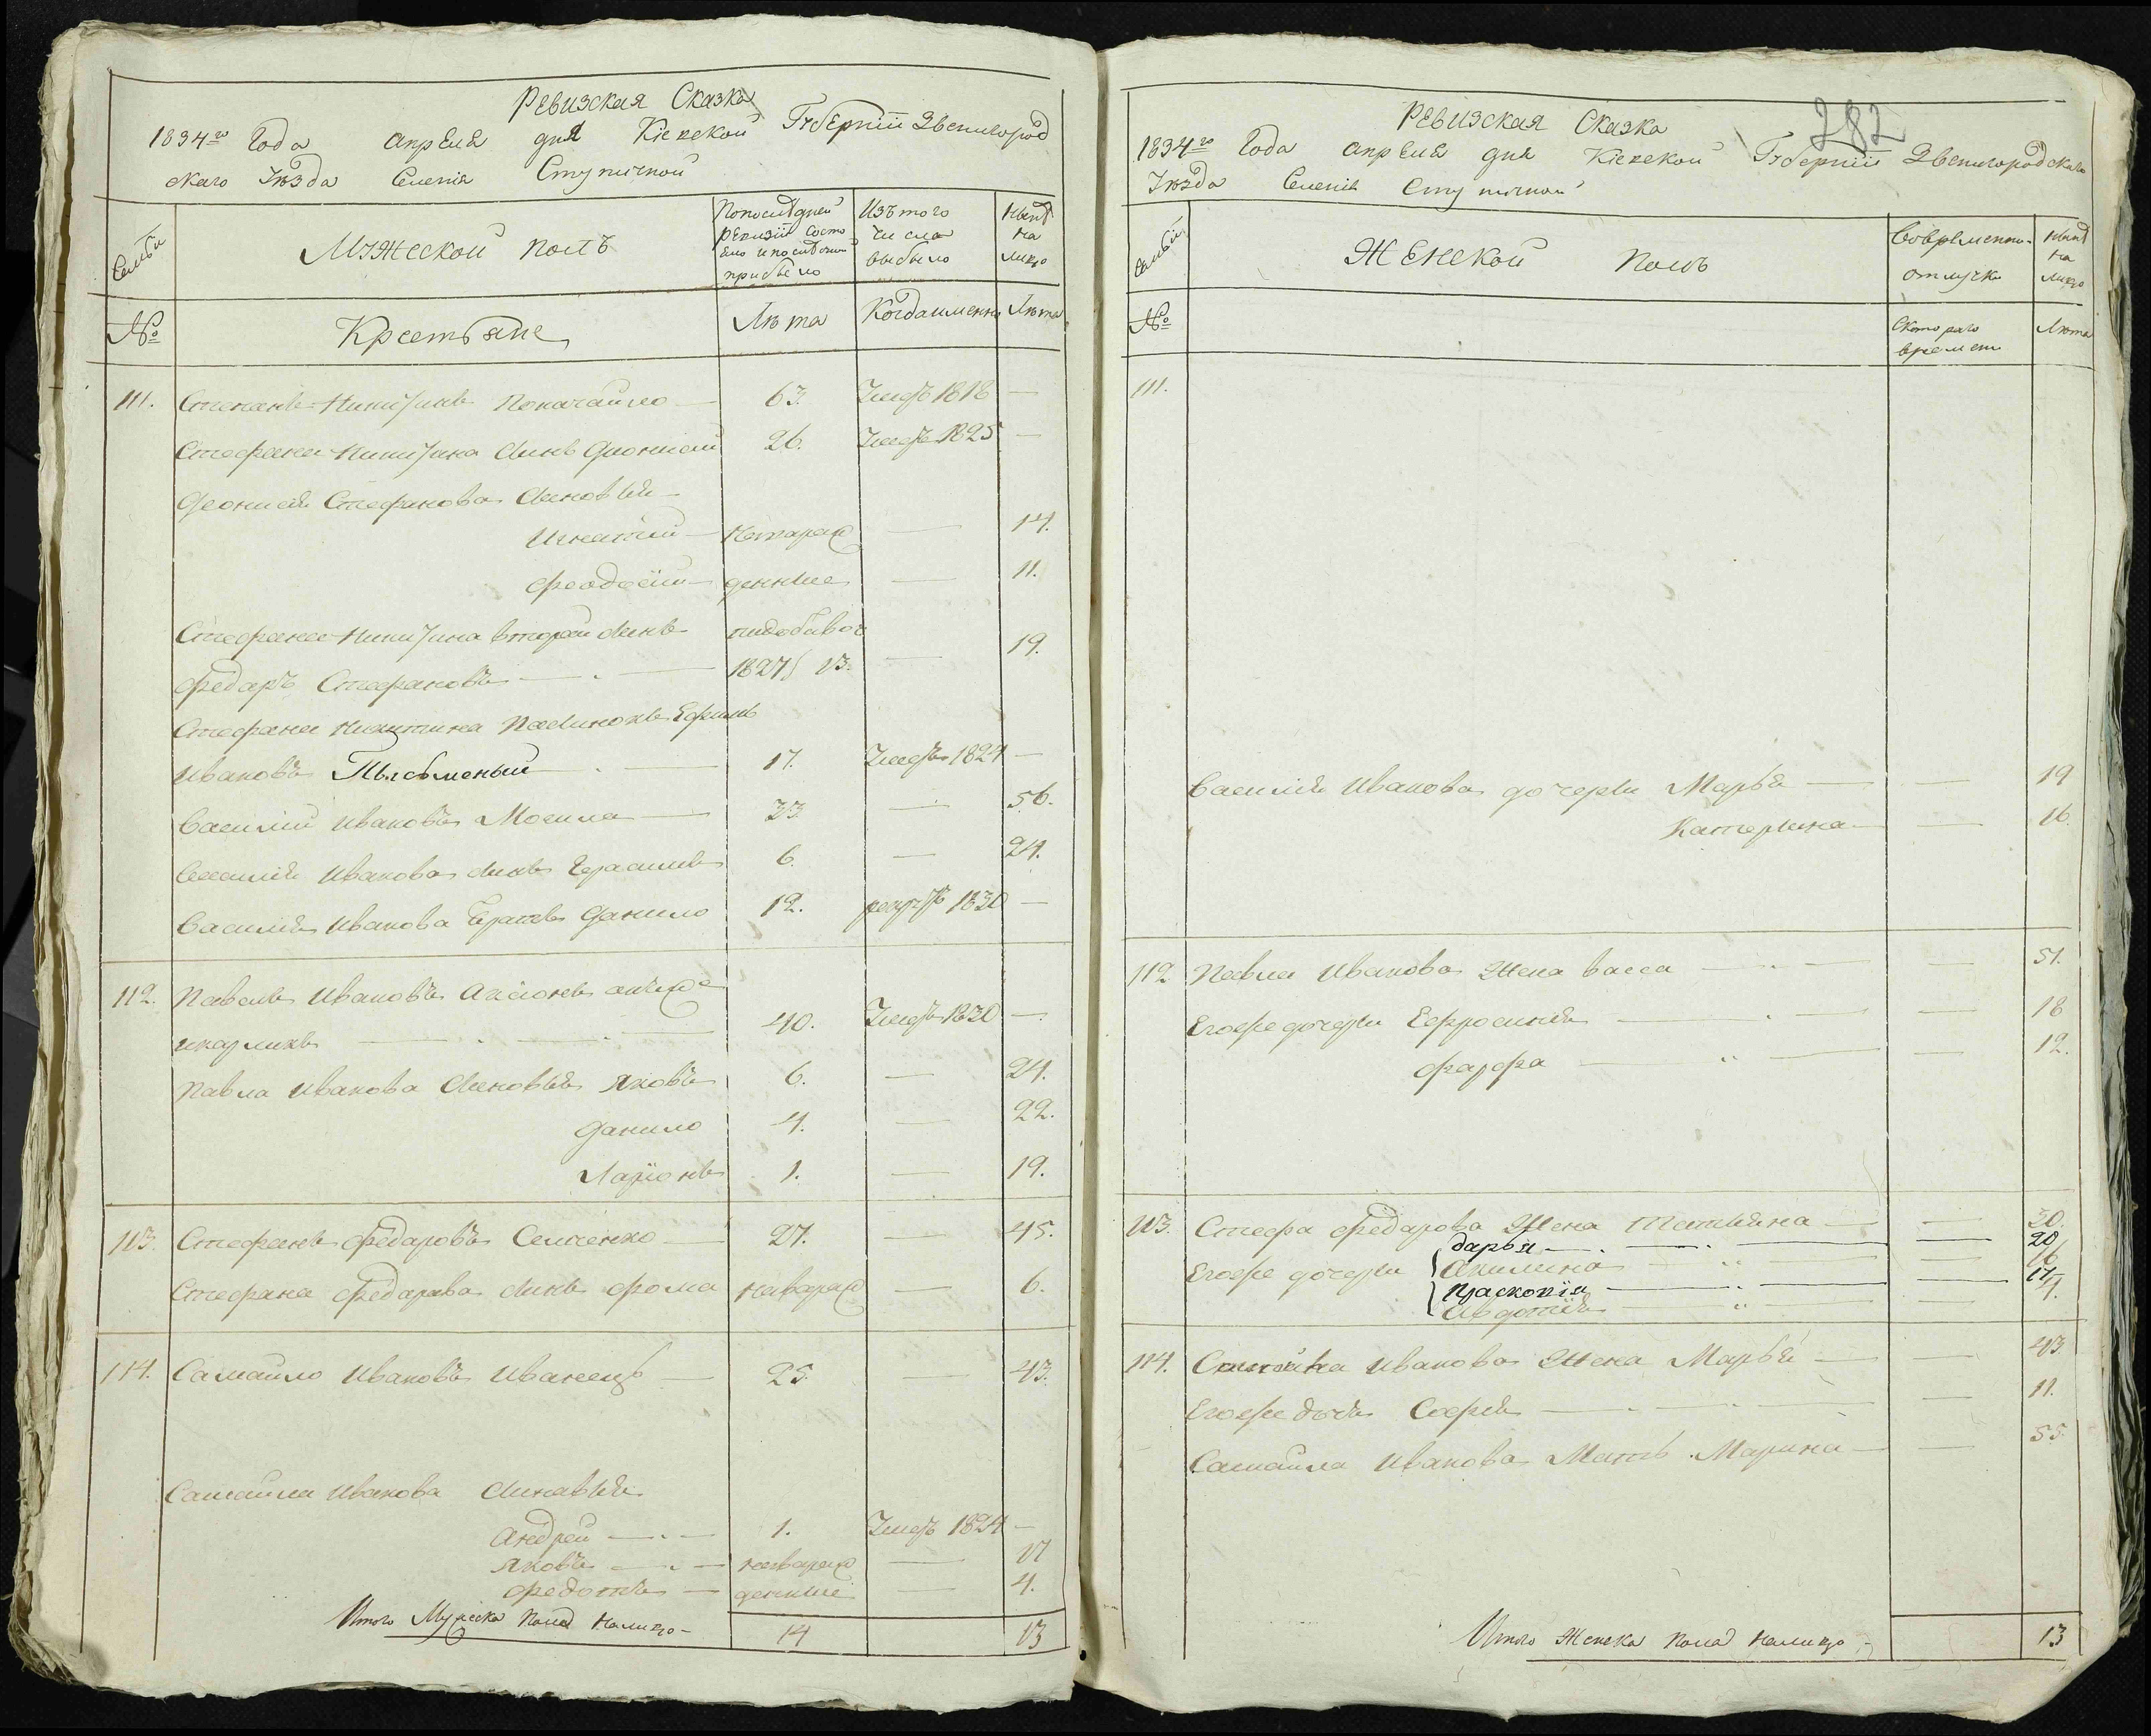 Ревизская Сказка
1834го Года Апреля дня Кіевской Губерніи Звенигород
скаго Уѣзда Селенія Ступичной
Семьи
Мужеской полъ
По последней
ревизіи состо
яло и после онои
прибыло
Изъ того
числа
выбыло
Нынѣ
на
лицо
№
Крестьяне
Лѣта
Когда именно
Лѣта
111. Степанъ Никитинъ Покачайло 63. Умеръ 1818 —
Стефана Никитина сынъ Дионисий 26. Умеръ 1825 —
Дионисія Стефанова сыновья
Игнатій новорож — 14.
Феодосій денные — 11.
Стефана Никитина вторый сынъ
Федаръ Стефановъ 1827 13. — 19.
Стефана Никитина пасынокъ Ефимъ
Ивановъ Письменый 17. Умеръ 1824 —
Василий Ивановъ Могила 33 — 56.
Василія Иванова сынъ Герасимъ 6. — 24.
Василія Иванова братъ Данило 12. рекрутъ 1830 —
112. Павелъ Ивановъ
40. Умеръ 1830 —
Павла Иванова сыновья Яковъ 6. — 24.
Данило 4. — 22.
Ларіонъ 1. — 19.
113. Стефанъ Федаровъ Семченко 27. — 45.
Стефана Федарова сынъ Фома новорож — 6.
114. Самайло Ивановъ Иванецъ 25. — 43.
Самайла Иванова сынавья
Андрей 1. Умеръ 1824 —
Яковъ новорож — 17
Федотъ денные — 4.
Итого Мужеска пола налицо 14 13
282
Ревизская Сказка
1834го Года Апреля дня Кіевской Губерніи Звенигородскаго
Уѣзда Селенія Ступичной
Семьи
Женской полъ
Во временной
отлучке
Нынѣ
на
лицо
№
С котораго
времени
Лѣта
111.
Василія Иванова дочери Марья — 19
Катерина — 16.
112 Павла Иванова жена Васса — 51.
Его же дочери Ефросинія — 18
— 12.
113. Стефа Федарова жена Татьяна — 50.
Дарья — 20
Его же дочери Акилина — 16
Прасковія — 14
Авдотія — 4.
114. Самайла Иванова жена Марья — 43
Его же дочь Софія — 11.
Самайла Иванова мать Марина — 55.
Итого Женска пола налицо 13